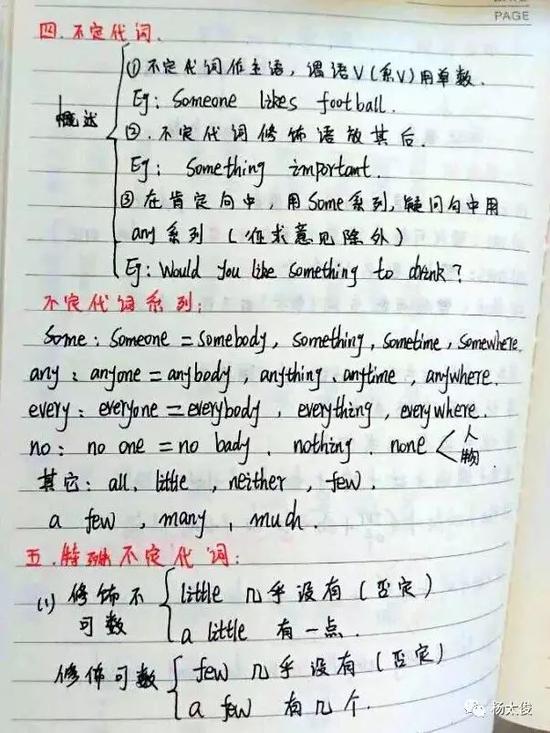 PAGE
四.不定代词.
概述
①不定代词作主语,谓语V(系V)用单数.
Eg: Someone likes football.
②.不定代词修饰语放其后.
Eg: Something important.
③在肯定句中,用Some系列,疑问句中用
any系列(征求意见除外)
Eg: Would you like something to drink?
不定代词系列:
Some: Someone = somebody, something, sometime, somewhere.
any: anyone = anybody, anything, anytime, anywhere.
every: everyone = everybody, everything, everywhere.
no: no one = no bady, nothing, none < 人 物.
其它: all, little, neither, few.
a few, many, much.
五.特殊不定代词:
(1) 修饰不可数
little 几乎没有(否定)
a little 有一点.
修饰可数
few 几乎没有(否定)
a few 有几个.
杨太俊